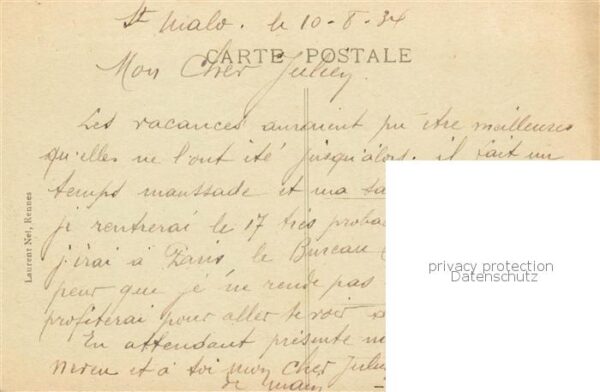 St Malo. le 10-8-34
CARTE POSTALE
Mon Cher Julien.
Les vacances auraient pu être meilleures
qu'elles ne l'ont été jusqu'alors. il fait un
temps maussade et ma
je rentrerai le 17 très
j'irai à Paris le Bureau
peur que je m'en rende pas
profiterai pour aller te voir
En attendant présente
et à toi mon cher
de main
Laurent Nel, Rennes
privacy protection
Datenschutz